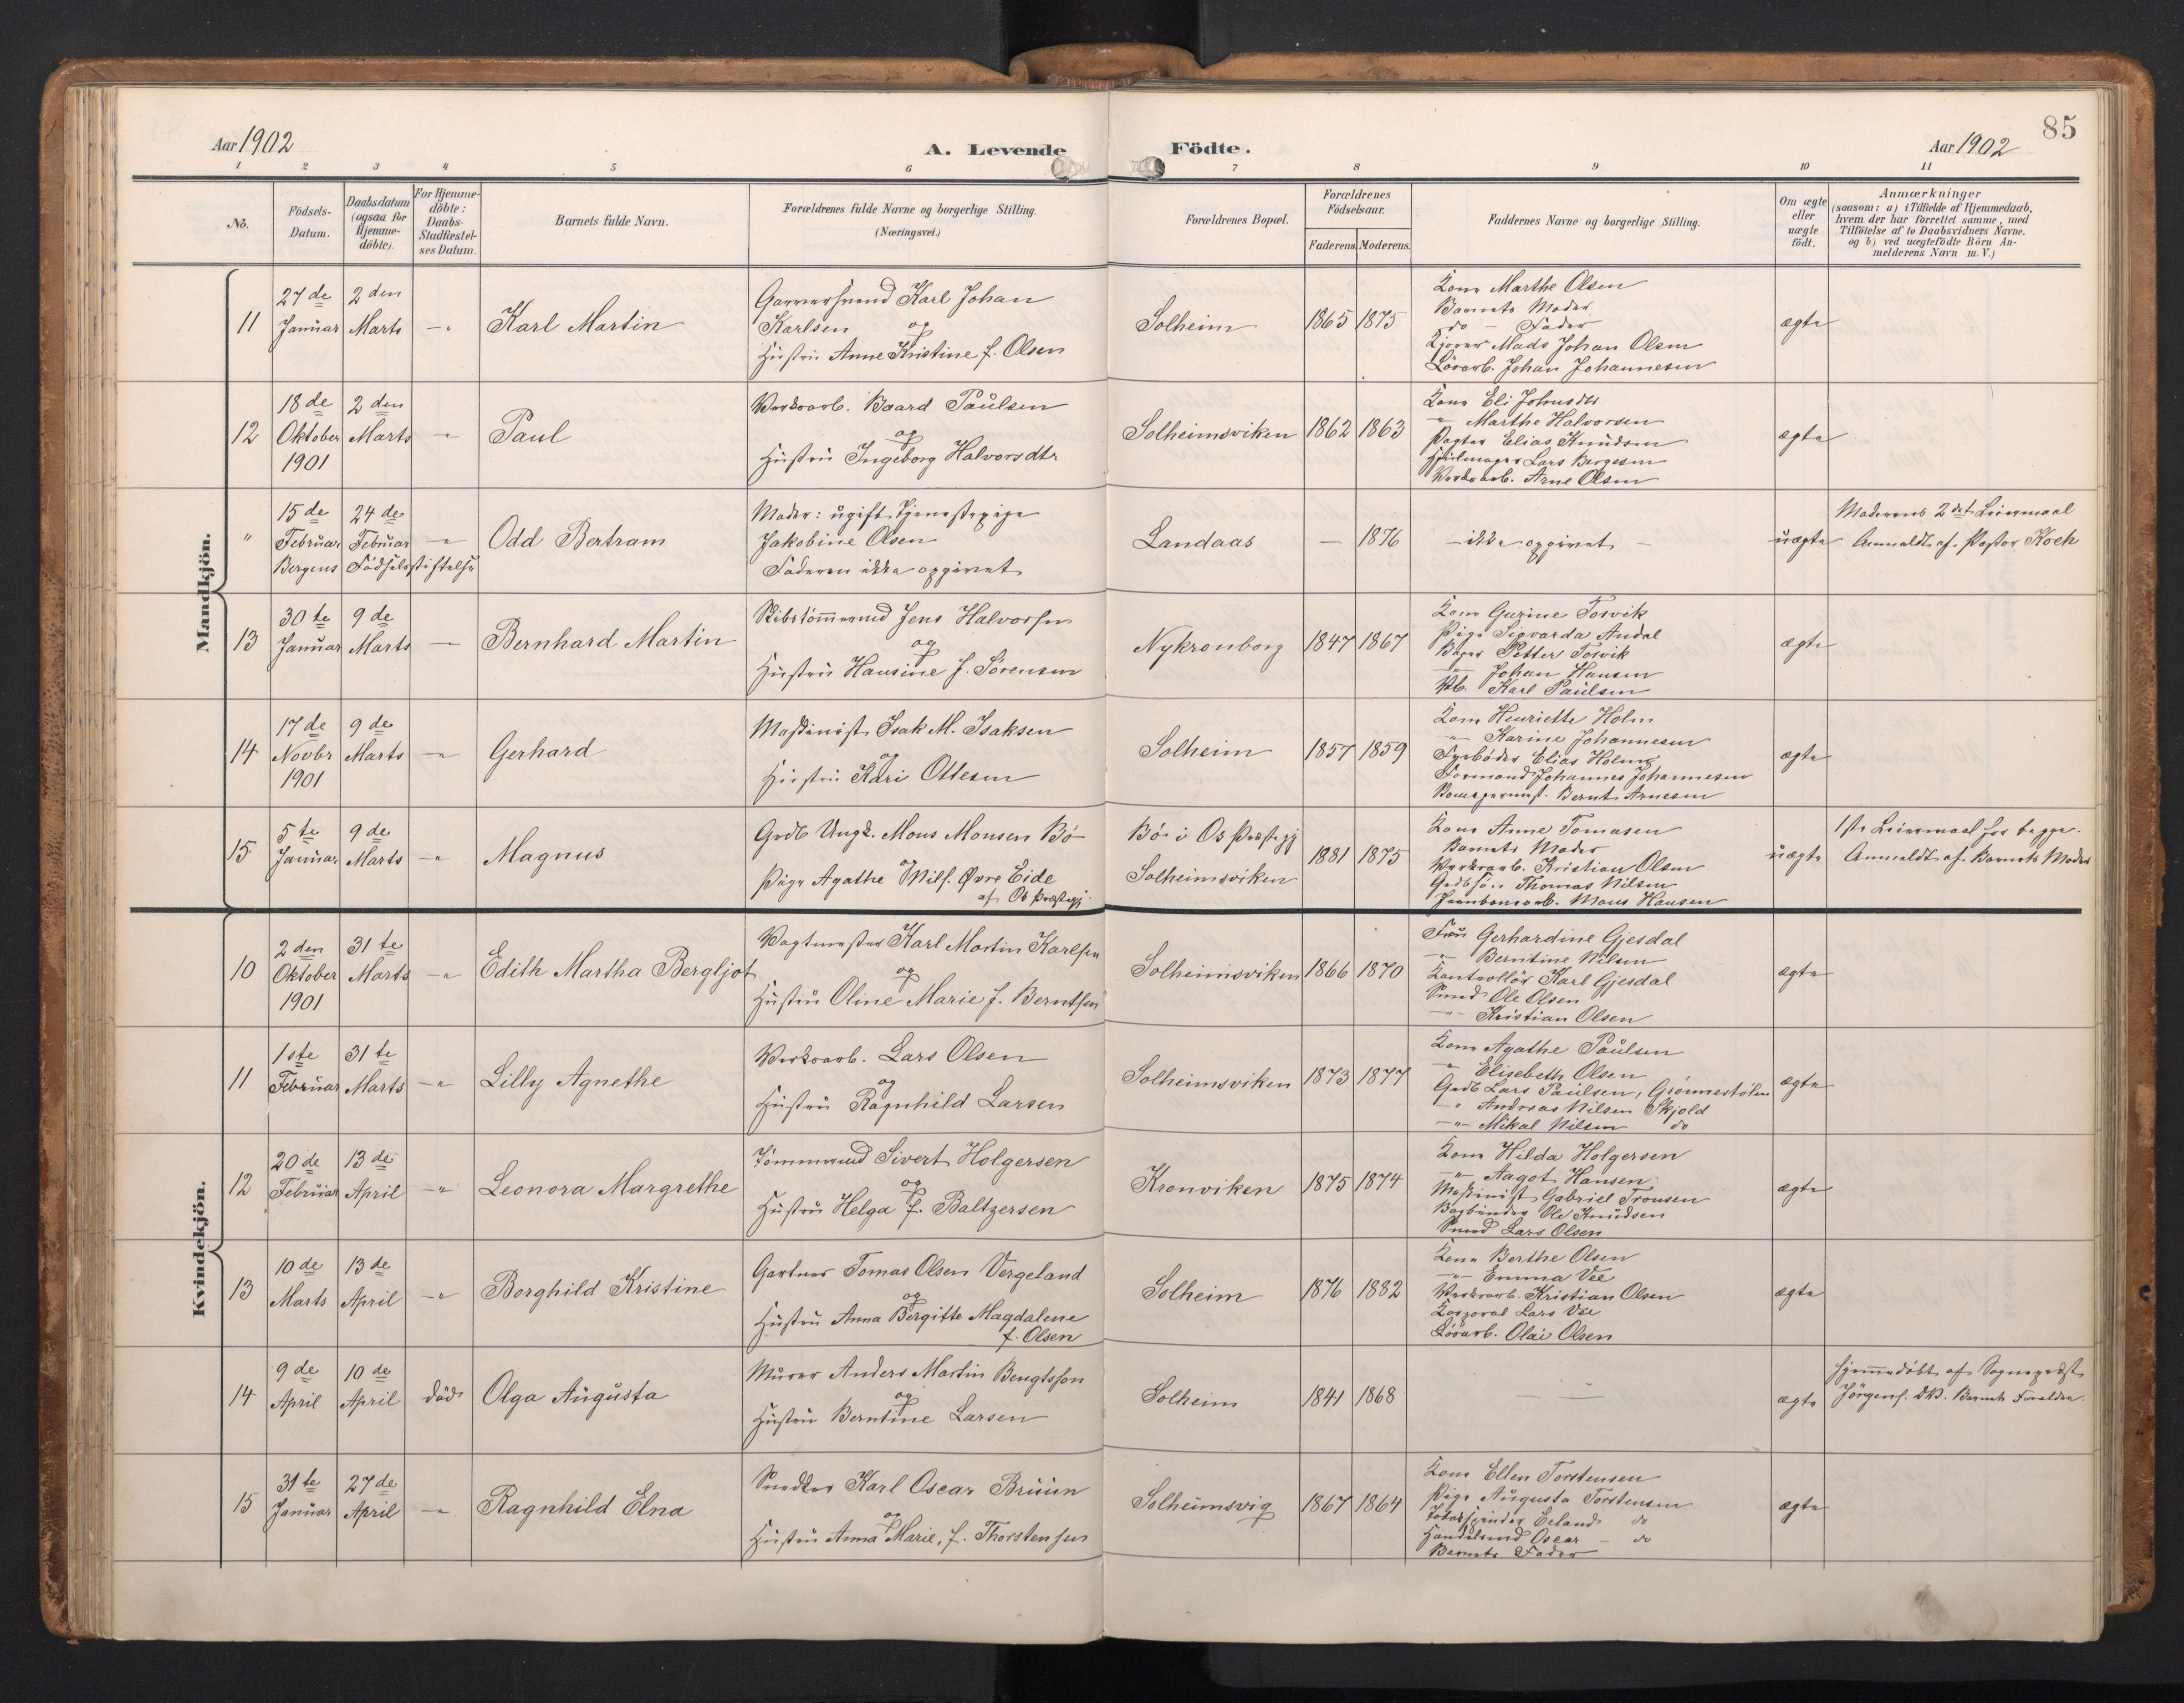 85
Aar 1902
A. Levende
Födte.
Aar 1902
1 2 3 4 5 6 7 8 9 10 11
No.
Födsels-
Datum.
Daabsdatum
(ogsaa for
Hjemme-
döbte).
For Hjemme-
döbte:
Daabs-
Stadfæstel-
ses Datum.
Barnets fulde Navn.
Forældrenes fulde Navne og borgerlige Stilling.
(Næringsvei.)
Forældrenes Bopæl.
Forældrenes
Födselsaar.
Faderens. Moderens.
Faddernes Navne og borgerlige Stilling.
Om ægte
eller
uægte
födt.
Anmærkninger
(saasom: a) i Tilfælde af Hjemmedaab,
hvem der har forrettet samme, med
Tilföielse af to Daabsvidners Navne.
og b) ved uægtefödte Börn An-
melderens Navn m. V.)
Mandkjön.
11
27de
Januar
2den
Marts
Karl Martin
Garversvend Karl Johan
Karlsen og
Hustru Anne Kristine f. Olsen
Solheim
1865 1875
Kone Marthe Olsen
Barnets Moder
do - Fader
Mads Johan Olsen
Løsarb. Johan Johannesen
ægte
12
18de
Oktober
1901
2den
Marts
Paul
Verksarb. Baard Paulsen
og
Hustru Ingeborg Halvorsdtr
Solheimsviken
1862 1863
Kone Eli Johnsdtr
" Marthe Halvorsen
Elias Knudsen
Lars Børgesen
Verksarb. Arne Olsen
ægte
"
15de
Februar
24de
Februar
Bergens Födselsstiftelse
Odd Bertram
Moder: ugift Tjenestepige
Jakobine Olsen
Faderen ikke opgivet
Landaas
— 1876
- ikke opgivet -
uægte
Moderens 2det Leiermaal
Anmeldt af Pastor Koch
13
30te
Januar
9de
Marts
Bernhard Martin
Skibstømmermd Jens Halvorsen
og
Hustru Hansine f. Sørensen
Nykronborg
1847 1867
Kone Gurine Tosvik
Pige Sigvarda Andal
Petter Tosvik
Johan Hansen
Karl Paulsen
ægte
14
17de
Novbr
1901
9de
Marts
Gerhard
Maskinist Isak M. Isaksen
og
Hustru Kari Ottesen
Solheim
1857 1859
Kone Henriette Holm
" Karine Johannesen
Fyrbøder Elias Holm
Formand Johannes Johannesen
Bernt Arnesen
ægte
15
5te
Januar
9de
Marts
Magnus
Grdb Ungk. Mons Monsen Bö
og
Pige Agathe Nilsd. Øvre Eide
af Os Præstegj.
Bö i Os Præstegj
Solheimsviken
1881 1875
Kone Anne Tomasen
Barnets Moder
Verksarb. Kristian Olsen
Thomas Nilsen
Jernbanearb. Mons Hansen
uægte
1ste Leiermaal for begge.
Anmeldt af Barnets Moder
Kvindekjön.
10
2den
Oktober
1901
31te
Marts
Edith Martha Bergljot
Vagtmester Karl Martin Karlsen
og
Hustru Oline Marie f. Berntsen
Solheimsviken
1866 1870
Fru Gerhardine Gjesdal
" Berntine Nilsen
Kontrollør Karl Gjesdal
Smed Ole Olsen
" Kristian Olsen
ægte
11
1ste
Februar
31te
Marts
Lilly Agnethe
Verksarb. Lars Olsen
og
Hustru Ragnhild Larsen
Solheimsviken
1873 1877
Kone Agathe Paulsen
" Elisebeth Olsen
Grdb Lars Paulsen, Grönnestölen
" Andreas Nilsen Skjold
" Mikal Nilsen do
ægte
12
20de
Februar
13de
April
Leonora Margrethe
Tömmermd Sivert Holgersen
og
Hustru Helga f. Baltzersen
Kronviken
1875 1874
Kone Hilda Holgersen
" Aagot Hansen
Maskinist Gabriel Tronsen
Bogbinder Ole Knudsen
Smed Lars Olsen
ægte
13
10de
Marts
13de
April
Borghild Kristine
Gartner Tomas Olsen Vergeland
og
Hustru Anna Bergitte Magdalene
f. Olsen
Solheim
1876 1882
Kone Berthe Olsen
" Emma Vee
Verksarb. Kristian Olsen
Korporal Lars Vee
Løsarb. Olai Olsen
ægte
14
9de
April
10de
April
död
Olga Augusta
Murer Anders Martin Bengtsson
og
Hustru Berntine Larsen
Solheim
1841 1868
ægte
Hjemmedøbt af Sogneprest
Jörgens. DV. Barnets Forældre.
15
31te
Januar
27de
April
Ragnhild Elna
Snedker Karl Oscar Bruun
og
Hustru Anna Marie, f. Thorstensen
Solheimsvig
1867 1864
Kone Ellen Torstensen
Pige Augusta Torstensen
Erland do
Handelsmd Oscar - do
Barnets Fader
ægte